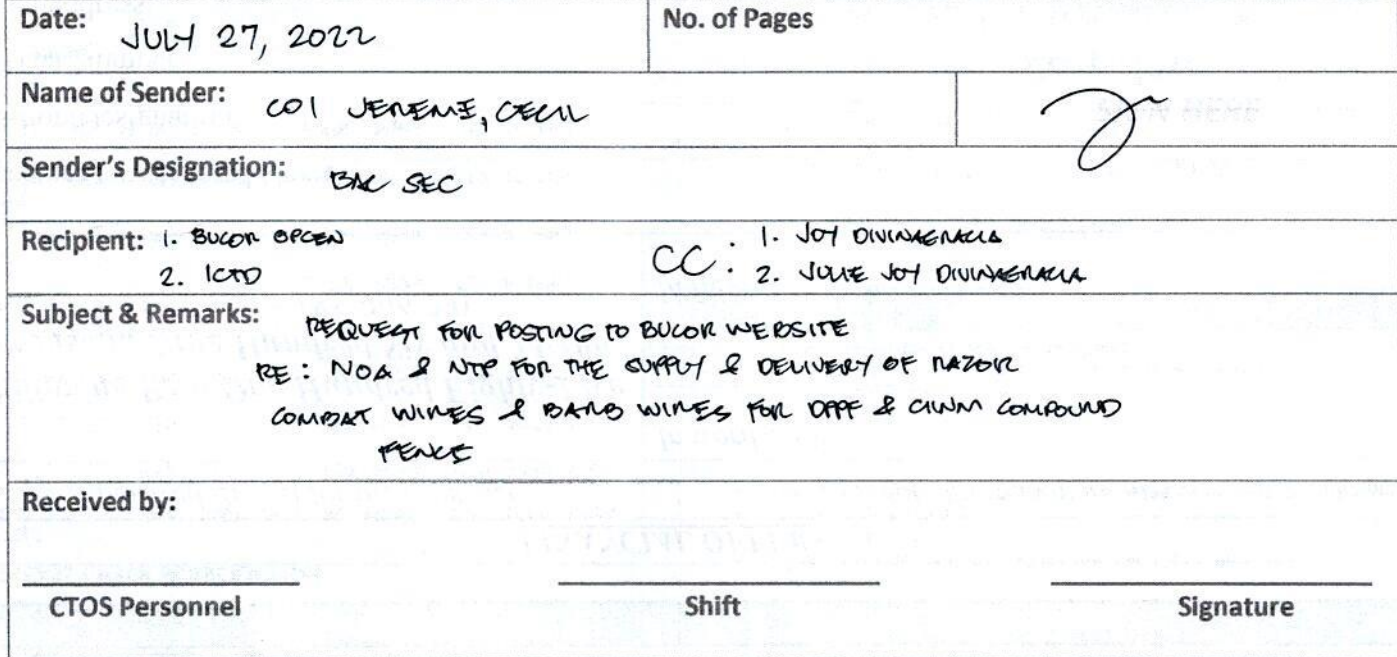 Date: JULY 27, 2022
No. of Pages
Name of Sender: CO1 JEREME, CECIL
Sender's Designation: BAC SEC
Recipient: 1. BUCOR OPCEN
2. ICTD
CC: 1. JOY DIVINAGRACIA
2. JULIE JOY DIVINAGRACIA
Subject & Remarks: REQUEST FOR POSTING TO BUCOR WEBSITE
RE: NOA & NTP FOR THE SUPPLY & DELIVERY OF RAZOR
COMBAT WIRES & BARB WIRES FOR DPPF & CIWM COMPOUND
FENCE
Received by:
CTOS Personnel
Shift
Signature